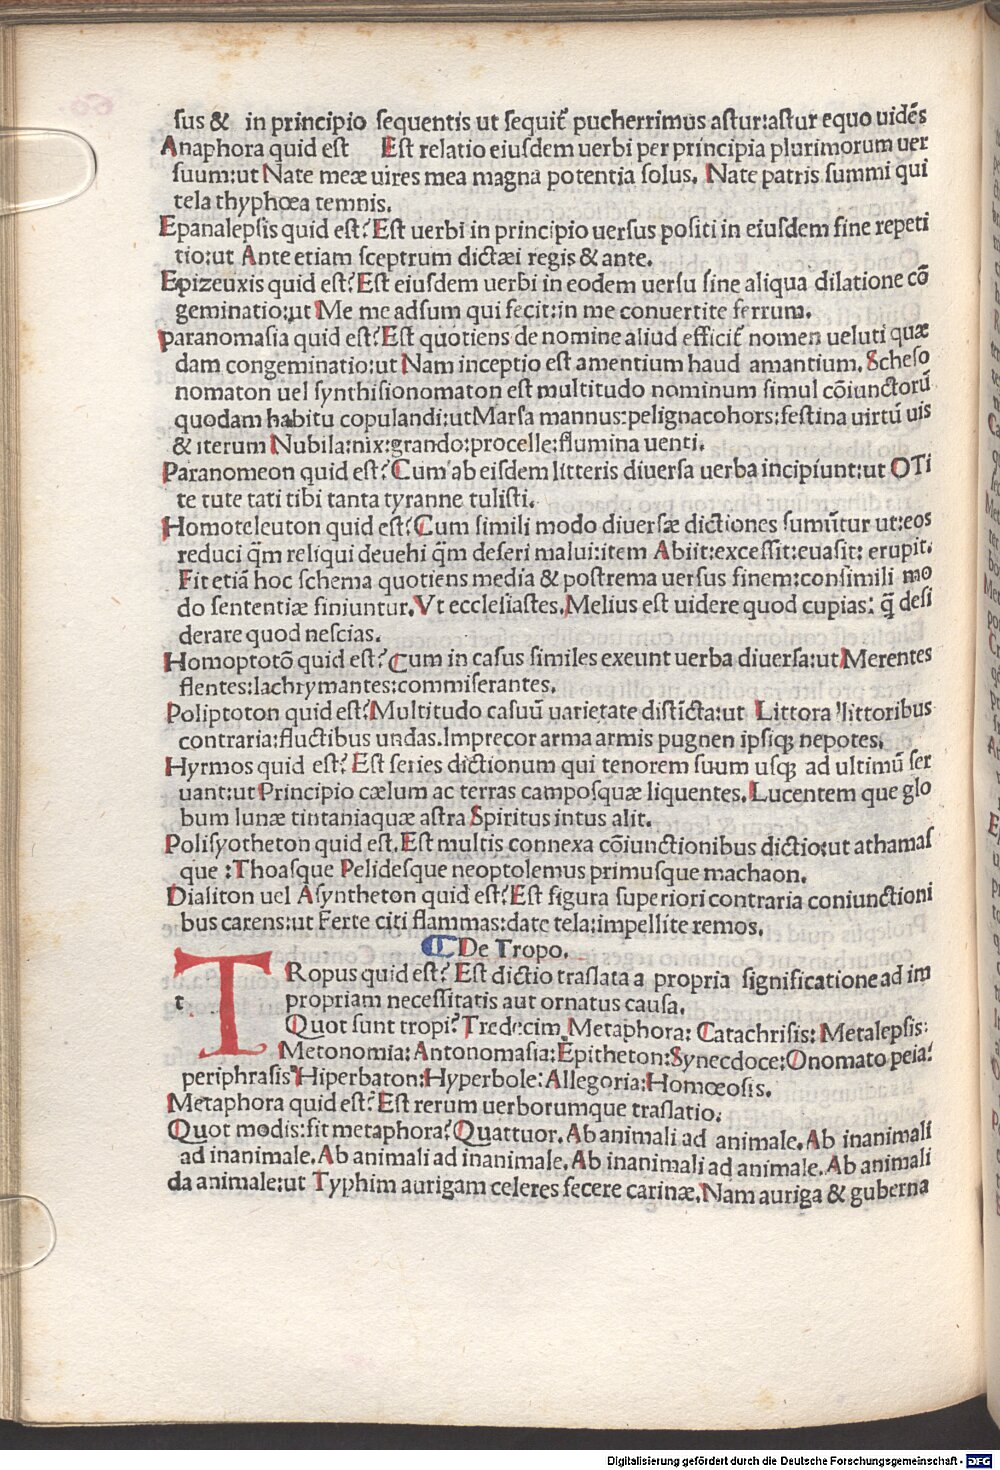 ſus & in principio ſequentis ut ſequit᷑ pucherrimus aſtur:aſtur equo uidēs
Anaphora quid eſt Eſt relatio eiuſdem uerbi per principia plurimorum uer
ſuum:ut Nate meæ uires mea magna potentia ſolus. Nate patris ſummi qui
tela thyphœa temnis.
Epanalepſis quid eſt? Eſt uerbi in principio uerſus poſiti in eiuſdem fine repeti
tio:ut Ante etiam ſceptrum dictæi regis & ante.
Epizeuxis quid eſt? Eſt eiuſdem uerbi in eodem uerſu ſine aliqua dilatione cō
geminatio:ut Me me adſum qui feci:in me conuertite ferrum.
paranomaſia quid eſt? Eſt quotiens de nomine aliud efficit᷑ nomen ueluti quæ
dam congeminatio:ut Nam inceptio eſt amentium haud amantium. Scheſo
nomaton uel ſynthiſionomaton eſt multitudo nominum ſimul cōiunctorū
quodam habitu copulandi:ut Marſa mannus:pelignacohors:feſtina uirtū uis
& iterum Nubila:nix:grando:procelle:flumina uenti.
Paranomeon quid eſt? Cum ab eiſdem litteris diuerſa uerba incipiunt:ut OTi
te tute tati tibi tanta tyranne tuliſti.
Homoteleuton quid eſt? Cum ſimili modo diuerſæ dictiones ſumūtur ut:eos
reduci q̄m reliqui deuehi q̄m deſeri malui:item Abiit:exceſſit:euaſit: erupit.
Fit etiā hoc ſchema quotiens media & poſtrema uerſus finem:conſimili mo
do ſententiæ finiuntur. Vt eccleſiaſtes. Melius eſt uidere quod cupias: q̄ deſi
derare quod neſcias.
Homoptotō quid eſt? Cum in caſus ſimiles exeunt uerba diuerſa:ut Merentes
flentes:lachrymantes:commiſerantes.
Poliptoton quid eſt? Multitudo caſuū uarietate diſtīcta:ut Littora littoribus
contraria:fluctibus undas. Imprecor arma armis pugnen ipſiq; nepotes.
Hyrmos quid eſt? Eſt ſeries dictionum qui tenorem ſuum uſq; ad ultimū ſer
uant:ut Principio cælum ac terras campoſquæ liquentes. Lucentem que glo
bum lunæ tintaniaquæ aſtra Spiritus intus alit.
Poliſyotheton quid eſt. Eſt multis connexa cōiunctionibus dictio:ut athamaſ
que :Thoaſque Pelideſque neoptolemus primuſque machaon.
Dialiton uel Aſyntheton quid eſt? Eſt figura ſuperiori contraria coniunctioni
bus carens:ut Ferte citi flammas:date tela:impellite remos.
De Tropo.
TRopus quid eſt? Eſt dictio traſlata a propria ſignificatione ad im
t
propriam neceſſitatis aut ornatus cauſa.
Quot ſunt tropi? Tredecim. Metaphora: Catachriſis: Metalepſis:
Metonomia: Antonomaſia: Epitheton: Synecdoce: Onomato peia:
periphraſis Hiperbaton: Hyperbole: Allegoria: Homœoſis.
Metaphora quid eſt? Eſt rerum uerborumque traſlatio.
Quot modis:fit metaphora? Quattuor. Ab animali ad animale. Ab inanimali
ad inanimale. Ab animali ad inanimale. Ab inanimali ad animale. Ab animali
da animale:ut Typhim aurigam celeres fecere carinæ. Nam auriga & guberna
Digitalisierung gefördert durch die Deutsche Forschungsgemeinschaft - DFG